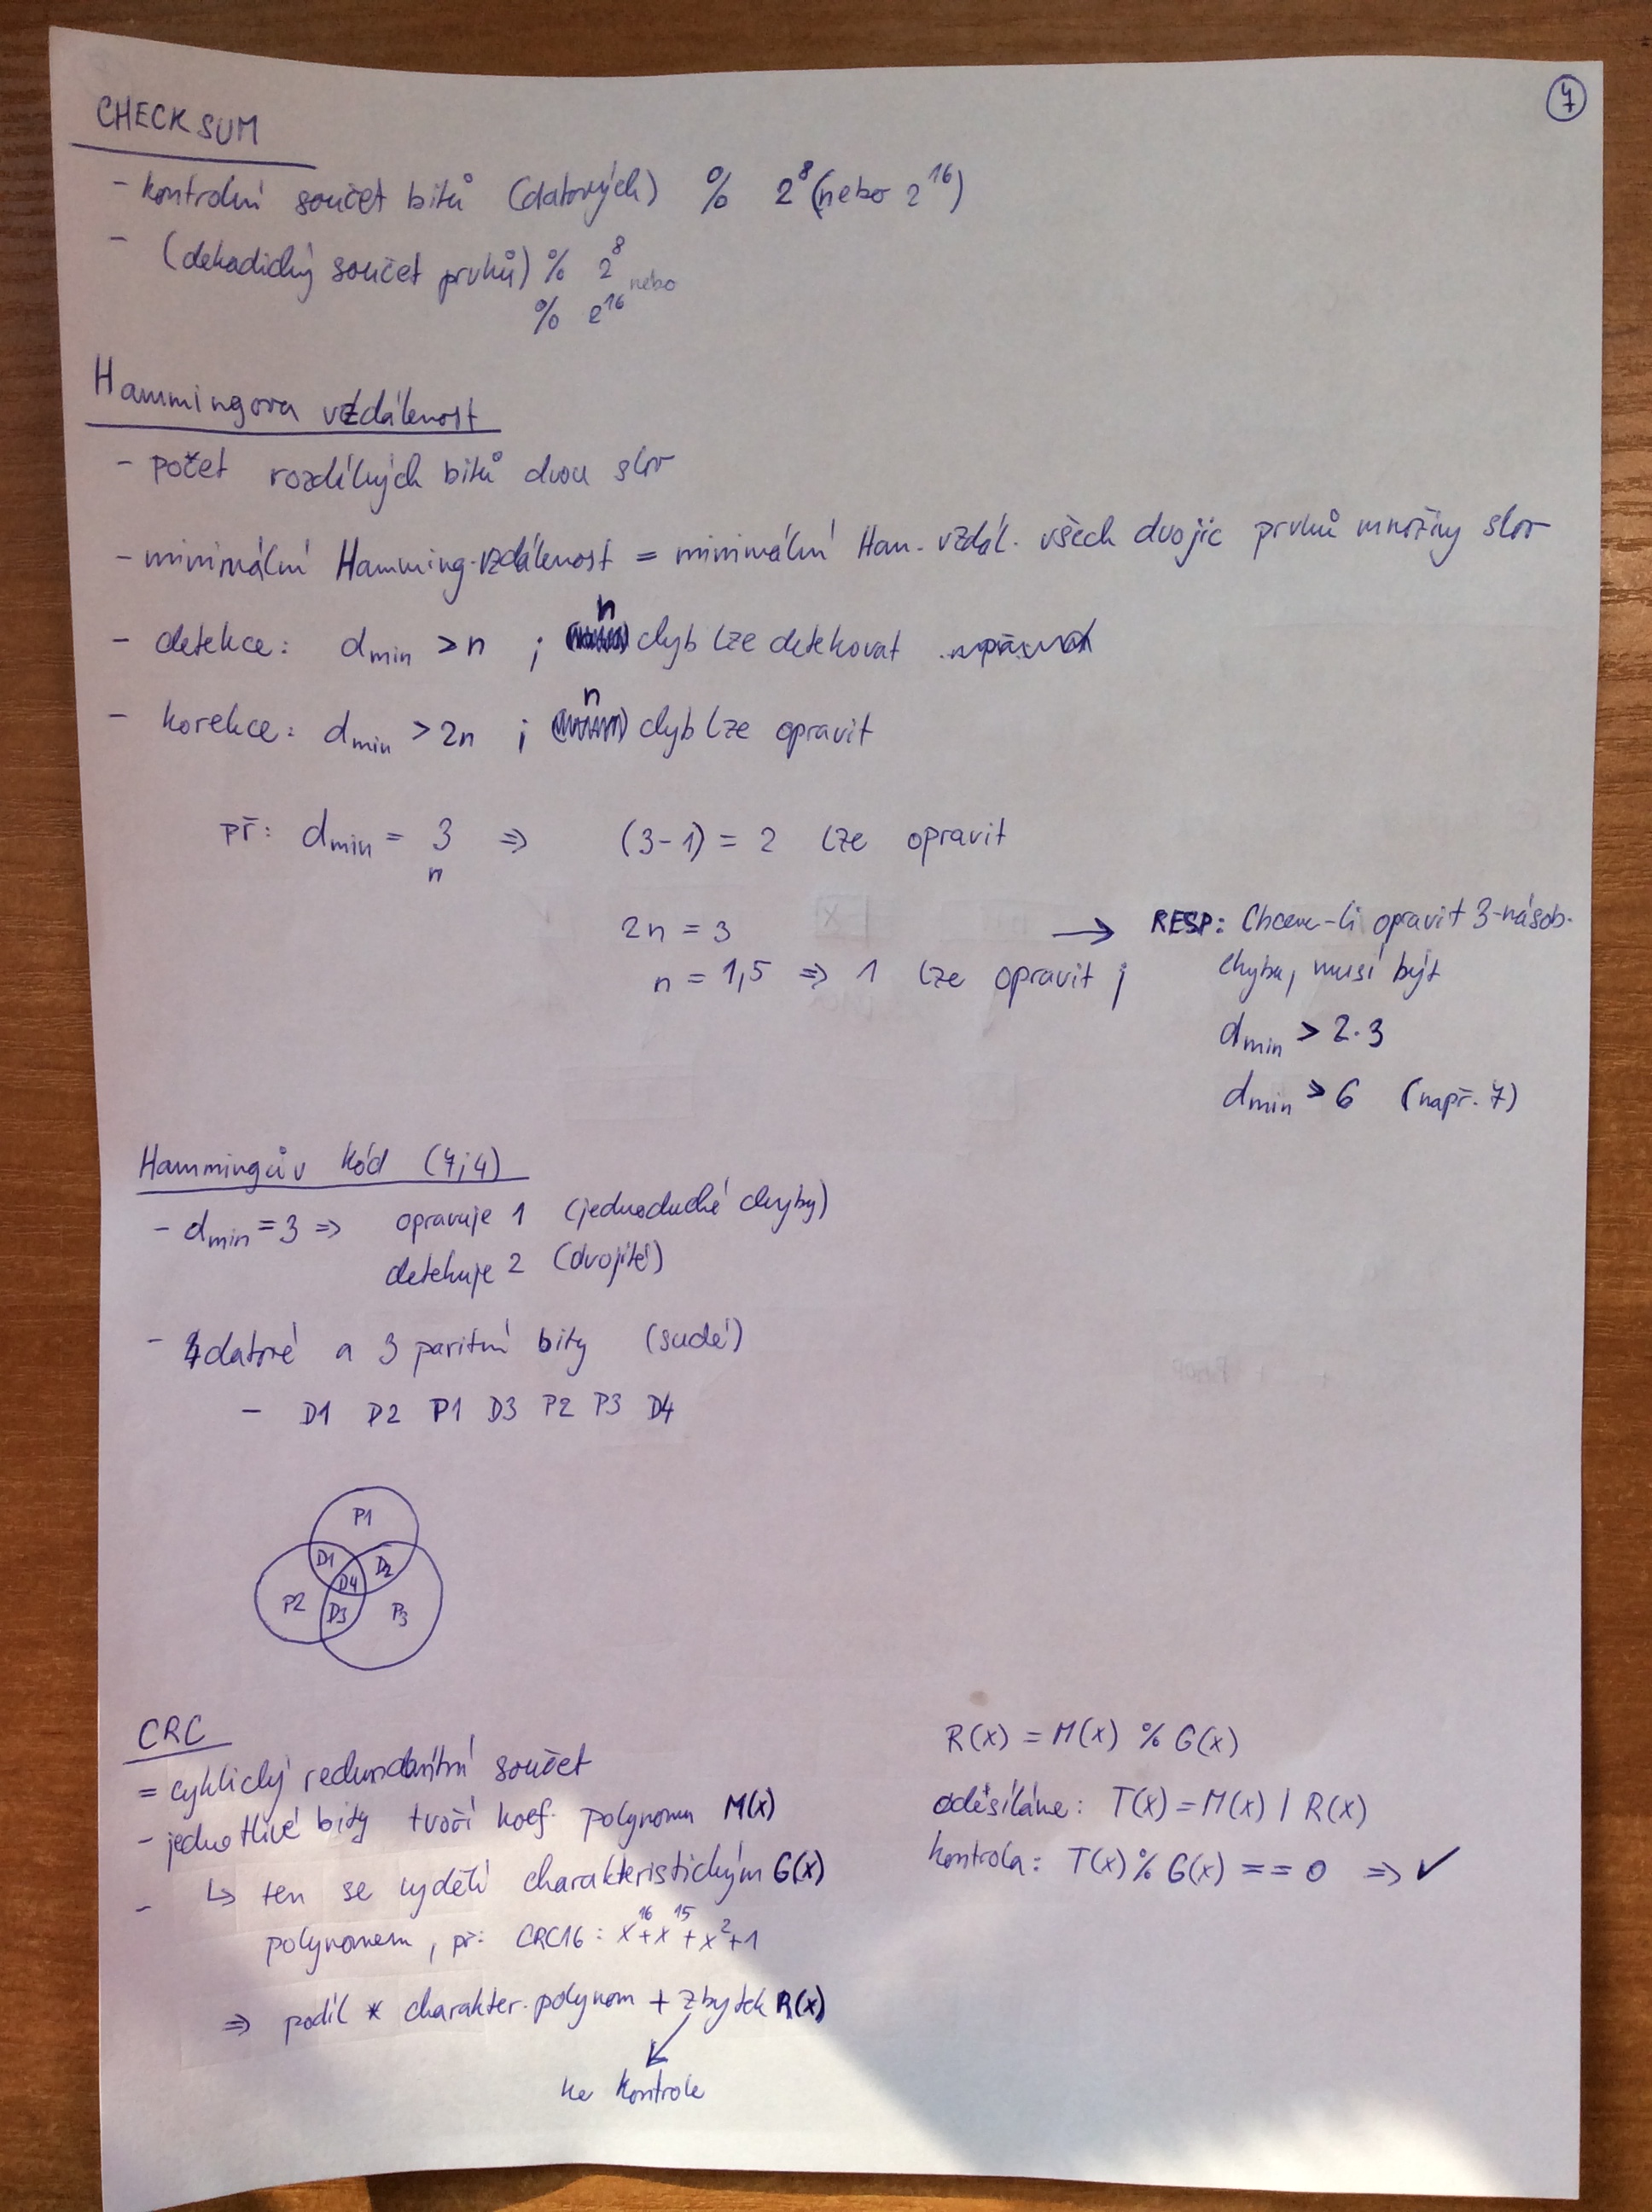 7
CHECKSUM
- kontrolní součet bitů (datových) % 2^8 (nebo 2^16)
- (dekadický součet prvků) % 2^8 nebo
% 2^16
Hammingova vzdálenost
- počet rozdílných bitů dvou slov
- minimální Hamming. vzdálenost = minimální Ham. vzdál. všech dvojic prvků množiny slov
- detekce: dmin > n ; n chyb lze detekovat
- korekce: dmin > 2n ; n chyb lze opravit
př: dmin = 3 => (3-1) = 2 lze opravit
n
2n = 3
n = 1,5 => 1 lze opravit ;
→ RESP: Chceme-li opravit 3-násob.
chybu, musí být
dmin > 2·3
dmin > 6 (např. 7)
Hammingův kód (7,4)
- dmin = 3 => opravuje 1 (jednoduché chyby)
detekuje 2 (dvojité)
- 4 datové a 3 paritní bity (sudé)
- D1 P2 P1 D3 P2 P3 D4
P1
P2 D1 D4 D2
D3 P3
CRC
= cyklický redundantní součet
- jednotlivé bity tvoří koef. polynomu M(x)
- ↳ ten se vydělí charakteristickým G(x)
polynomem, př: CRC16: x^16 + x^15 + x^2 + 1
=> podíl * charakter. polynom + zbytek R(x)
ke kontrole
R(x) = M(x) % G(x)
odesíláme: T(x) = M(x) | R(x)
kontrola: T(x) % G(x) == 0 => ✓